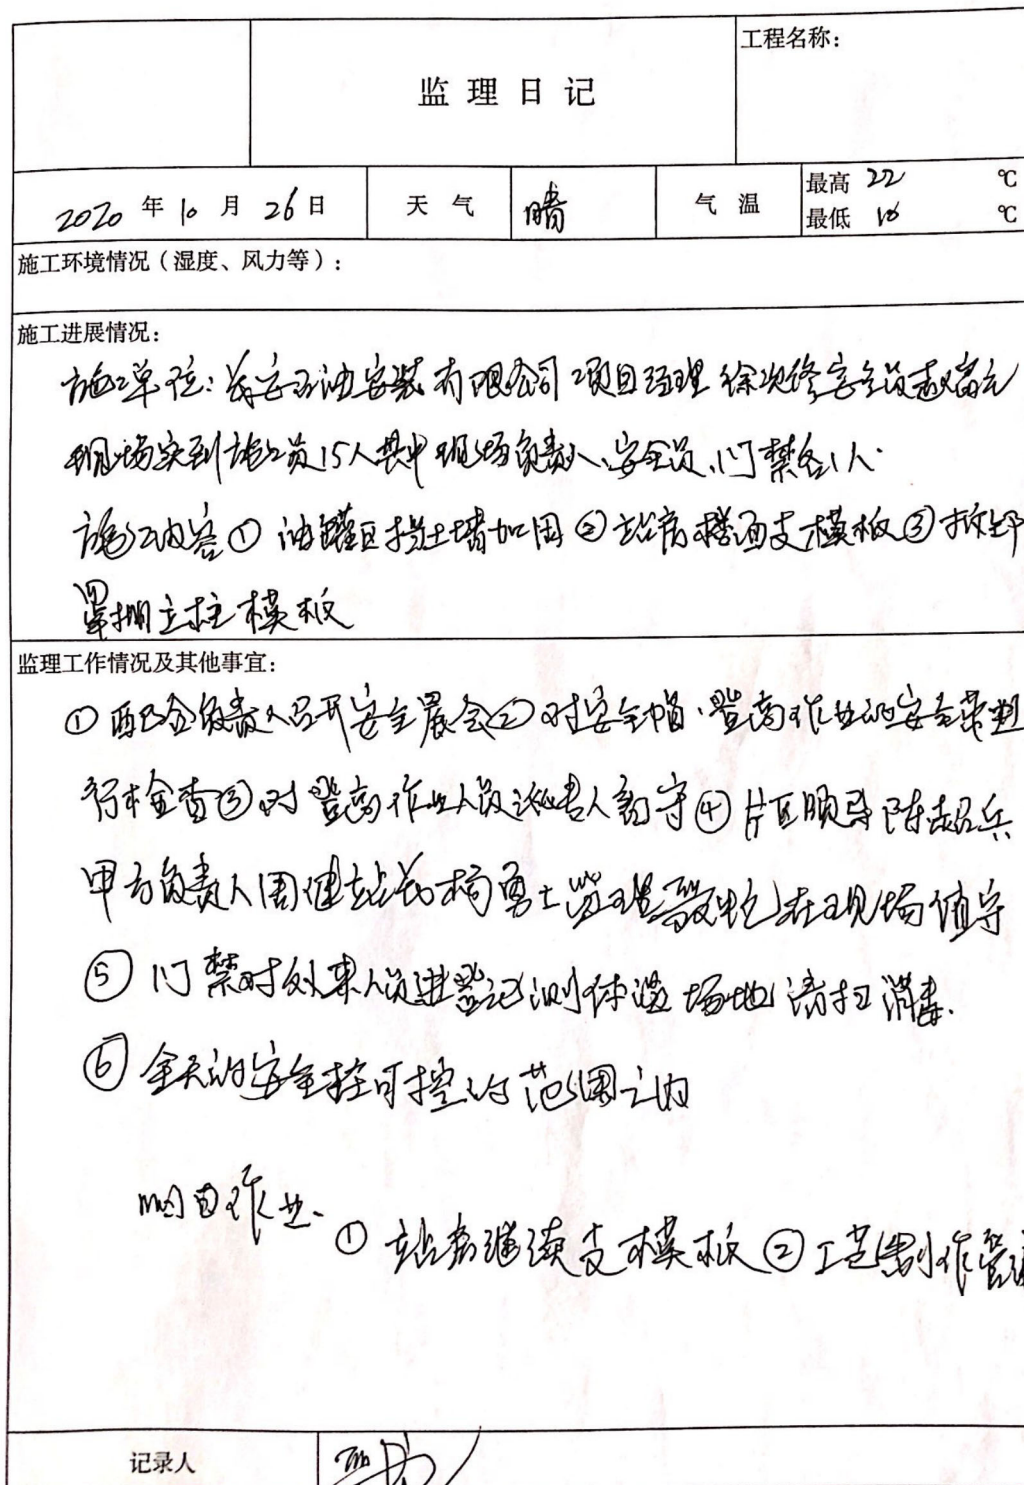 工程名称:
监理日记
2020年10月26日 天气 晴 气温 最高 22 ℃
最低 16 ℃
施工环境情况(湿度、风力等):
施工进展情况:
施工单位: 安装有限公司 项目经理 徐次修安全员赵富元
现场实到施工员15人其中现场负责人、安全员、门禁各1人.
施工内容① 油罐区挡土墙加固②站房楼面支模板③拆卸
罩棚立柱模板
监理工作情况及其他事宜:
① 配合负责人召开安全晨会②对安全帽、登高作业的安全带进
行检查③对登高作业人员派专人看守④片区领导陈超兵
甲方负责人周健站长杨勇士监理 在现场值守
⑤ 门禁对外来人员进登记测体温 场地清扫消毒.
⑥ 全天的安全控可控的范围之内
明日作业.
① 站房继续支模板②工艺制作管
记录人